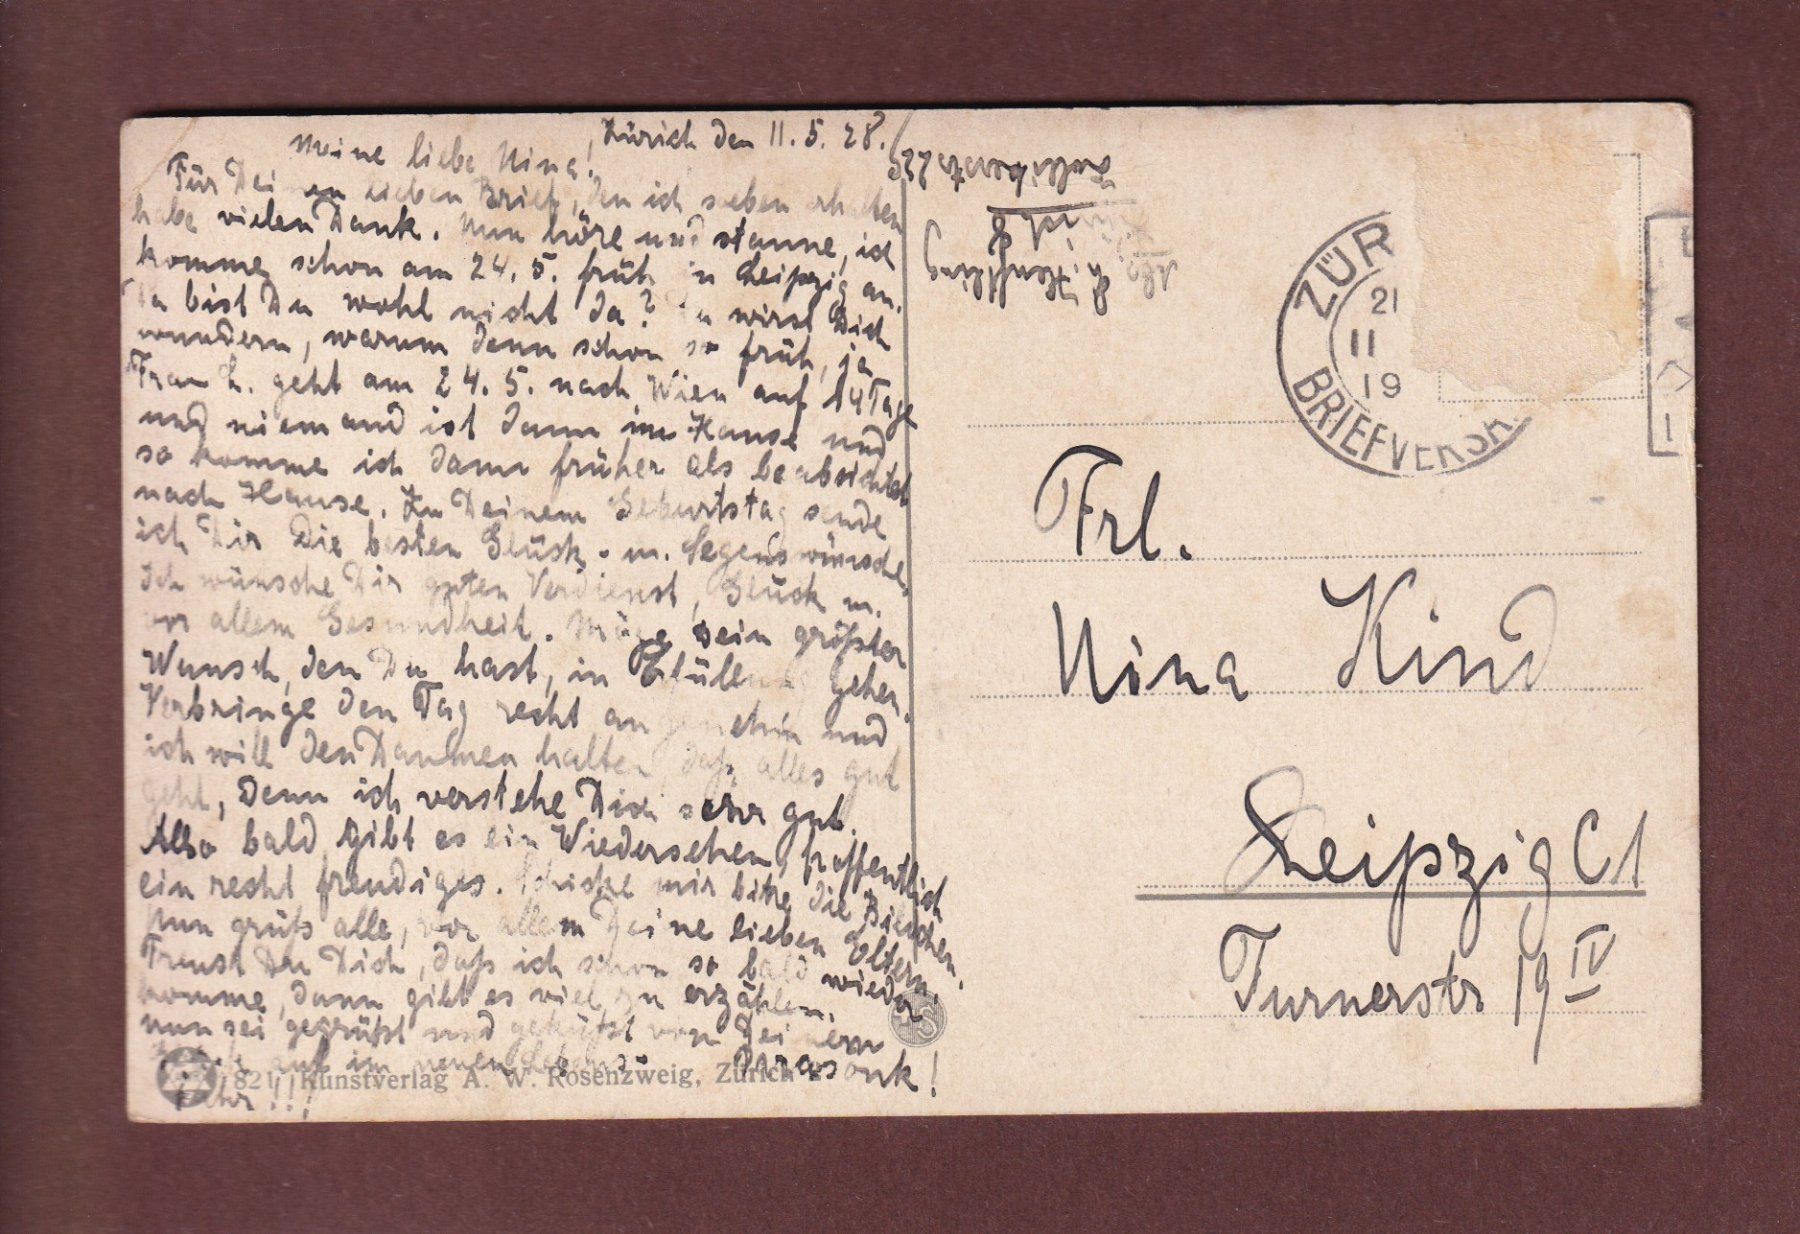 Zürich den 11.5.28.
Meine liebe Nina!
Für Deinen lieben Brief, den ich soeben erhalten
habe vielen Dank. Nun höre und staune, ich
komme schon am 24.5. früh in Leipzig an.
Da bist Du wohl nicht da? Du wirst Dich
wundern, warum denn schon so früh, ja
Frau L. geht am 24.5. nach Wien auf 14 Tage
und niemand ist dann im Hause und
so komme ich dann früher als beabsichtigt
nach Hause. Zu Deinem Geburtstag sende
ich Dir die besten Glück- u. Segenswünsche.
Ich wünsche Dir guten Verdienst, Glück u.
vor allem Gesundheit. Möge Dein größter
Wunsch, den Du hast, in Erfüllung gehen.
Verbringe den Tag recht angenehm und
ich will den Daumen halten, daß alles gut
geht, denn ich verstehe Dich sehr gut.
Also bald gibt es ein Wiedersehen, hoffentlich
ein recht freudiges. Schicke mir bitte die Bildchen.
Nun grüß alle, vor allem Deine lieben Eltern.
Freust Du Dich, daß ich schon so bald wieder
komme, dann gibt es viel zu erzählen.
Nun sei gegrüßt und geküßt von Deinem
auf im neuen Lebens
Jahr!!!
821 Kunstverlag A. W. Rosenzweig, Zürich
Abs.
Zürich 8
ZÜR
21
11
19
BRIEFVERSA
Frl.
Nina Kind
Leipzig C1
Turnerstr 19 IV